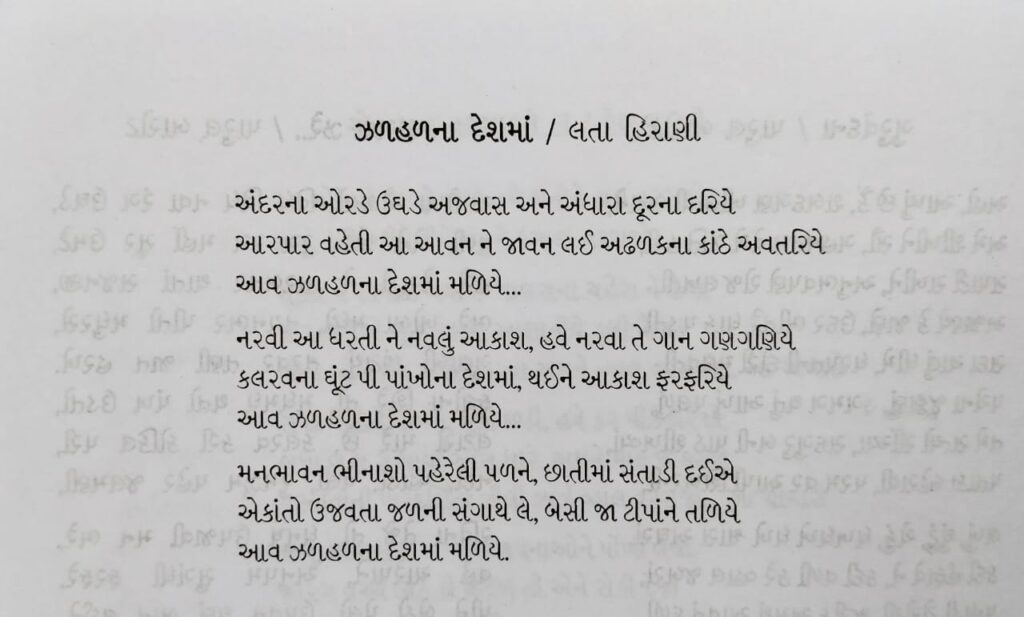 ઝળહળના દેશમાં / લતા હિરાણી
અંદરના ઓરડે ઉઘડે અજવાસ અને અંધારા દૂરના દરિયે
આરપાર વહેતી આ આવન ને જાવન લઈ અઢળકના કાંઠે અવતરિયે
આવ ઝળહળના દેશમાં મળિયે...
નરવી આ ધરતી ને નવલું આકાશ, હવે નરવા તે ગાન ગણગણિયે
કલરવના ઘૂંટ પી પાંખોના દેશમાં, થઈને આકાશ ફરફરિયે
આવ ઝળહળના દેશમાં મળિયે...
મનભાવન ભીનાશો પહેરેલી પળને, છાતીમાં સંતાડી દઈએ
એકાંતો ઉજવતા જળની સંગાથે લે, બેસી જા ટીપાંને તળિયે
આવ ઝળહળના દેશમાં મળિયે.